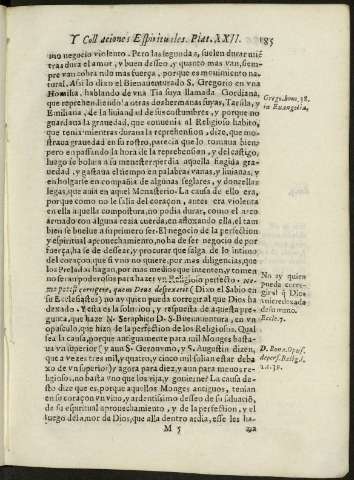 Y Collaciones Espirituales. Plat. XXII. 185
mo negocio violento. Pero las segundas, suelen durar miē
tras dura el amor, y buen desseo, y quanto mas van, siem-
pre van cobrando mas fuerça, porque es mouimiento na-
tural. Assi lo dixo el Bienauenturado S. Gregorio en vna
Homilia, hablando de vna Tia suya llamada Gordiana,
que reprehendiendola otras dos hermanas suyas, Tarsila, y
Emiliana, de la liuiandad de sus costumbres, y porque no
guardaua la grauedad, que conuenia al Religioso habito,
que tenia mientras duraua la reprehension, dize, que mo-
straua grauedad en su rostro, parecia que lo tomaua bien,
pero en passando la hora de la reprehension, y del castigo,
luego se boluia a su menester perdia aquella fingida graue-
dad, y gastaua el tiempo en palabras vanas, y liuianas, y
en holgarse en compañia de algunas seglares, y donzellas
legas, que auia en aquel Monasterio. La causa de ello era,
porque como no le salia del coraçon, antes era violenta
en ella aquella compostura, no podia durar, como el arco
armado con alguna rezia cuerda, en afloxando ella, el tam
bien se buelue a su primer ser. El negocio de la perfection
y espiritual aprouechamiento, no ha de ser negocio de por
fuerça, ha se de dessear, y procurar que salga de lo intimo
del coraçon, que si vno no quiere, por mas diligencias, que
los Prelados hagan, por mas medios que intenten, y tomen
no seran poderosos para hazer vn Religioso perfecto. Ne-
mo potest corrigere, quem Deus despexerit (Dixo el Sabio en
su Ecclesiastes) no ay quien pueda corregir al que Dios ha
dexado. Y esta es la solucion, y respuesta de aquesta pre-
gunta, que haze N. Seraphico D. S. Buenauentura, en vn
opusculo, que hizo de la perfection de los Religiosos. Qual
sea la causa, porque antiguamente para mil Monges basta-
ua vn superior (y aun S. Geronymo, y S. Augustin dizen,
que a vezes tres mil, y quatro, y cinco mil solian estar deba
xo de vn superior) y agora para diez, y aun para menos re-
ligiosos, no basta vno que los rija, y gouierne? La causa de-
sto dize que es, porque aquellos Monges antiguos, tenian
en su coraçon vn viuo, y ardentissimo desseo de su saluaciō,
de su espiritual aprouechamiento, y de la perfection, y el
fuego del amor de Dios, que alla dentro ardia, esse les ha-
M 5 zia
Greg. hom. 38.
in Euangelia.
No ay quien
pueda corre-
gir al q̃ Dios
tuuiere dexado
de su mano.
Eccle. 7.
D. Bona. Opus.
de perf. Relig. l.